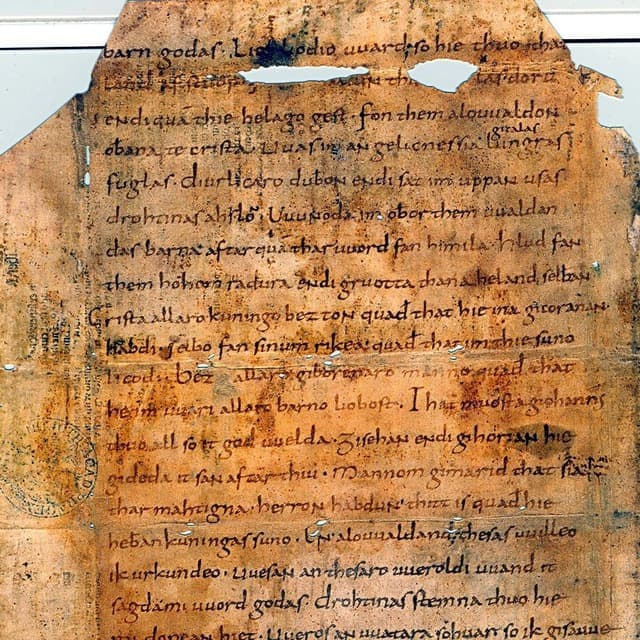 barn godas. Liof liodio uuard. so hie thuo that
endi quam thie helago gest. fon them alouualdon
obana te crista. Uuas im an gelicnessia lungras
gitalas
fuglas. diurlicaro dubon endi sat im uppan usas
drohtinas ahslo. Uuunoda im obar them uualdan
das barna aftar quam thar uuord fan himila. hlud fan
them hohon radura. endi gruotta thana heland selban
Crista allaro kuningo bezton quađ that hie ina gicoranan
habdi. selbo fan sinum rikea. quađ that im thie suno
licodi bez allaro giboranaro manno quađ that
he im uuari allaro barno liobost. That muosta giohannis
thuo all so it god uuelda. Zisehan endi gihorian hie
gideda it san aftar thui. Mannom gimarid that sia
thar mahtigna. herron habdun thitt is quađ hie
heban kuningas suno. En alouualdand thesas uuilleo
ik urkundeo. uuesan an thesaro uueroldi uuand it
sagda mi uuord godas. drohtinas stemna thuo hie
mi dopean hiet. Uueros an uuatara. so huar so ik gisauue